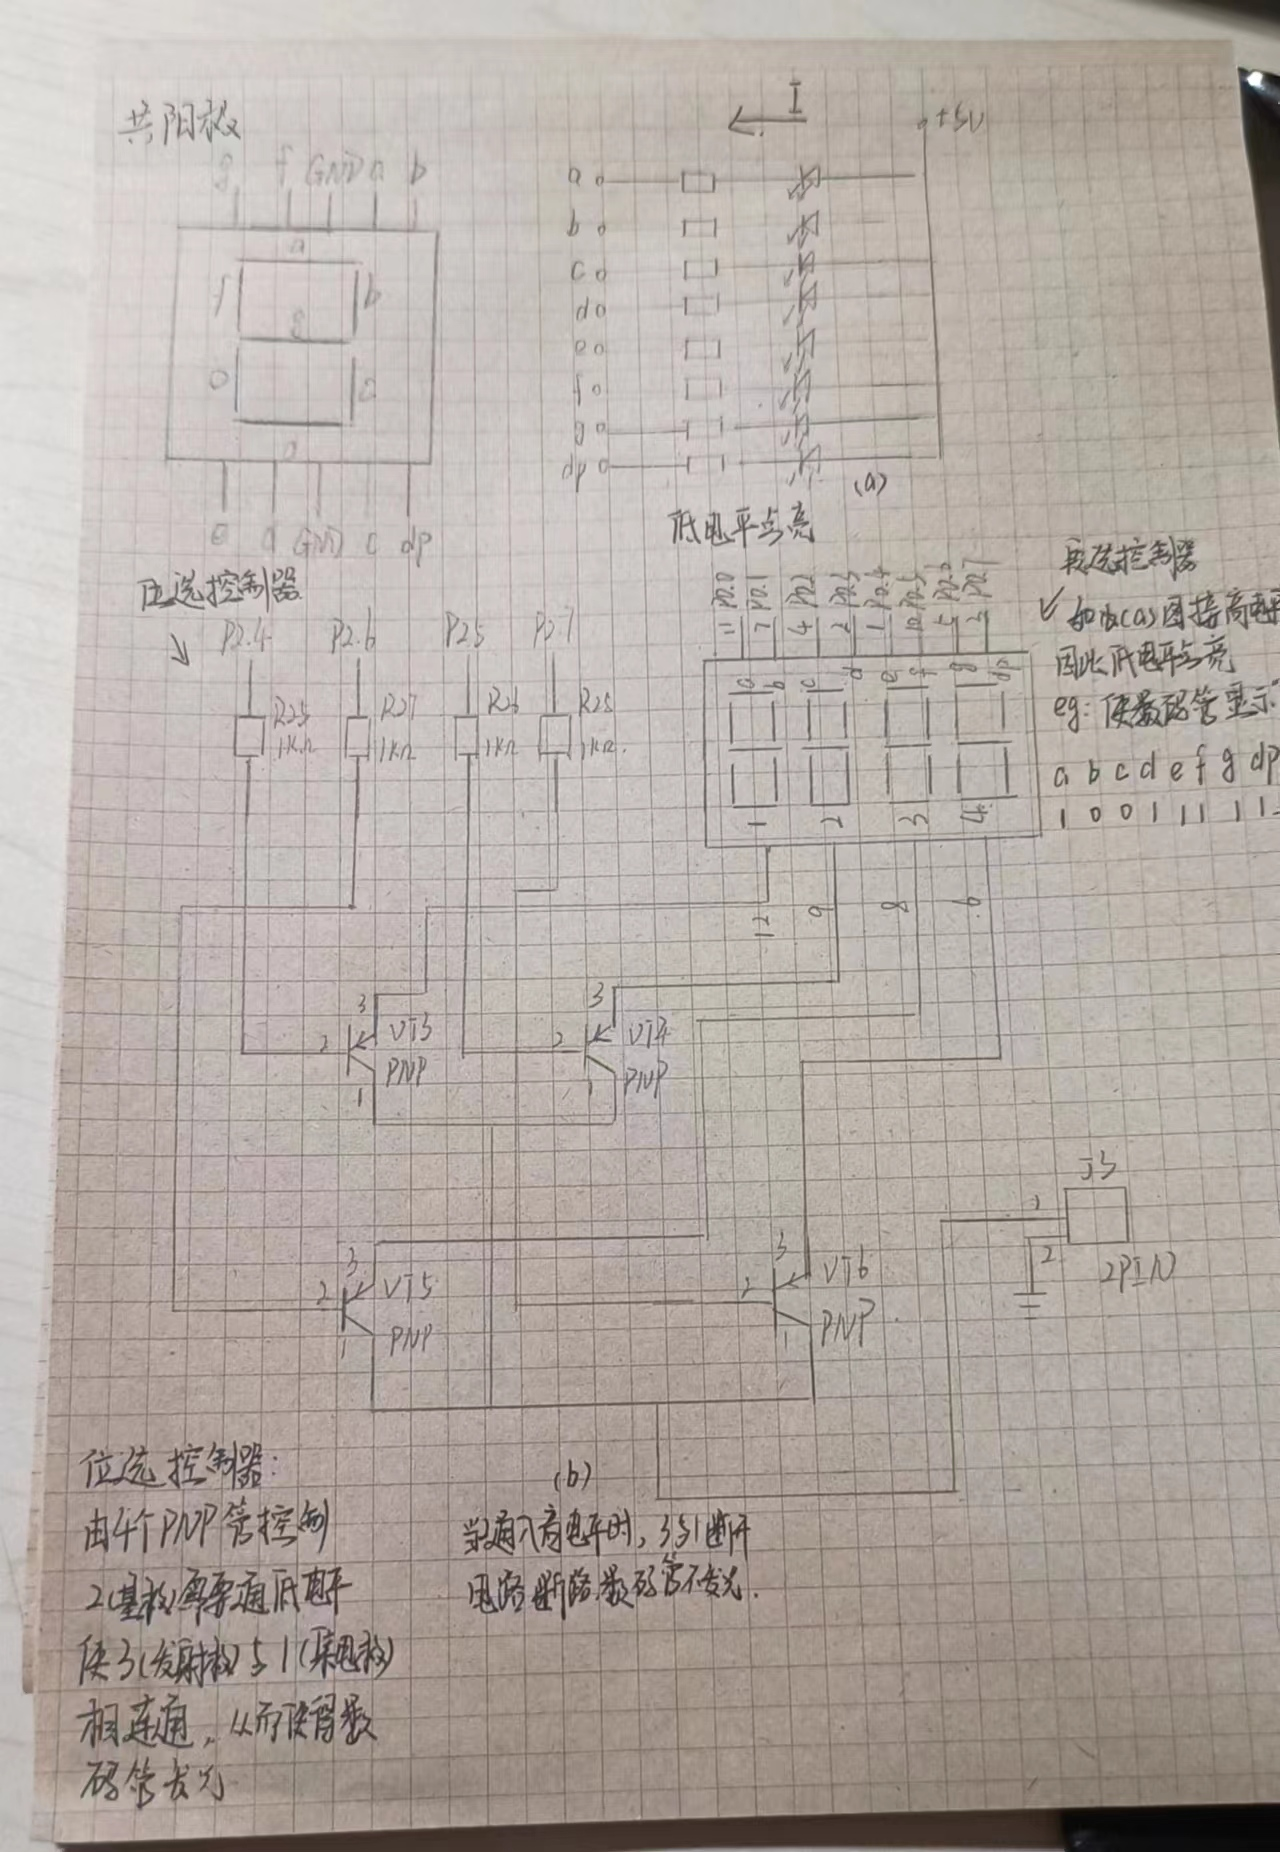 共阳极
g f GND a b
a
f b
g
e c
d
e d GND c dp
I
+5V
a
b
c
d
e
f
g
dp
(a)
低电平点亮
位选控制器
P2.4 P2.6 P2.5 P2.7
R25 1KΩ
R27 1KΩ
R26 1KΩ
R28 1KΩ
11 P0.0
7 P0.1
4 P0.2
2 P0.3
1 P0.4
10 P0.5
5
3 P0.7
a b c d e f g dp
1 2 3 4
12 9 8 6
段选控制器
如图(a)图接高电平
因此低电平点亮
eg: 使数码管显示
a b c d e f g dp
1 0 0 1 1 1 1 1
3
2 VT3
PNP
1
3
2 VT4
PNP
1
3
2 VT5
PNP
1
3
2 VT6
PNP
1
J3
1
2
2PIN
(b)
位选控制器:
由4个PNP管控制
2(基极)需要通低电平
使3(发射极)与1(集电极)
相连通,从而使得数
码管发光
当2通入高电平时,3与1断开
电路断路,数码管不发光.